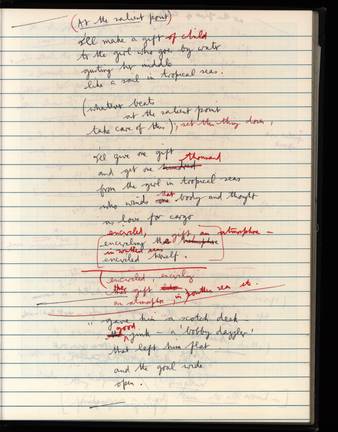 (At the salient point)
I'll make a gift of child
to the girl who goes by water
her middle
like a sail in tropical seas.
(whatever beats
at the salient point
take care of this), set the thing down,
I'll give one gift
and get one hundred thousand
from the girl in tropical seas
who winds that body and thought
no love for cargo
encircled,
encircling the gift an atmosphere –
encircled himself.
encircled encircling
the gift
an atmosphere, in
" gave him a scotch desk –
good junk – a 'bobby dazzler'
that left him flat
and the goal wide
open.